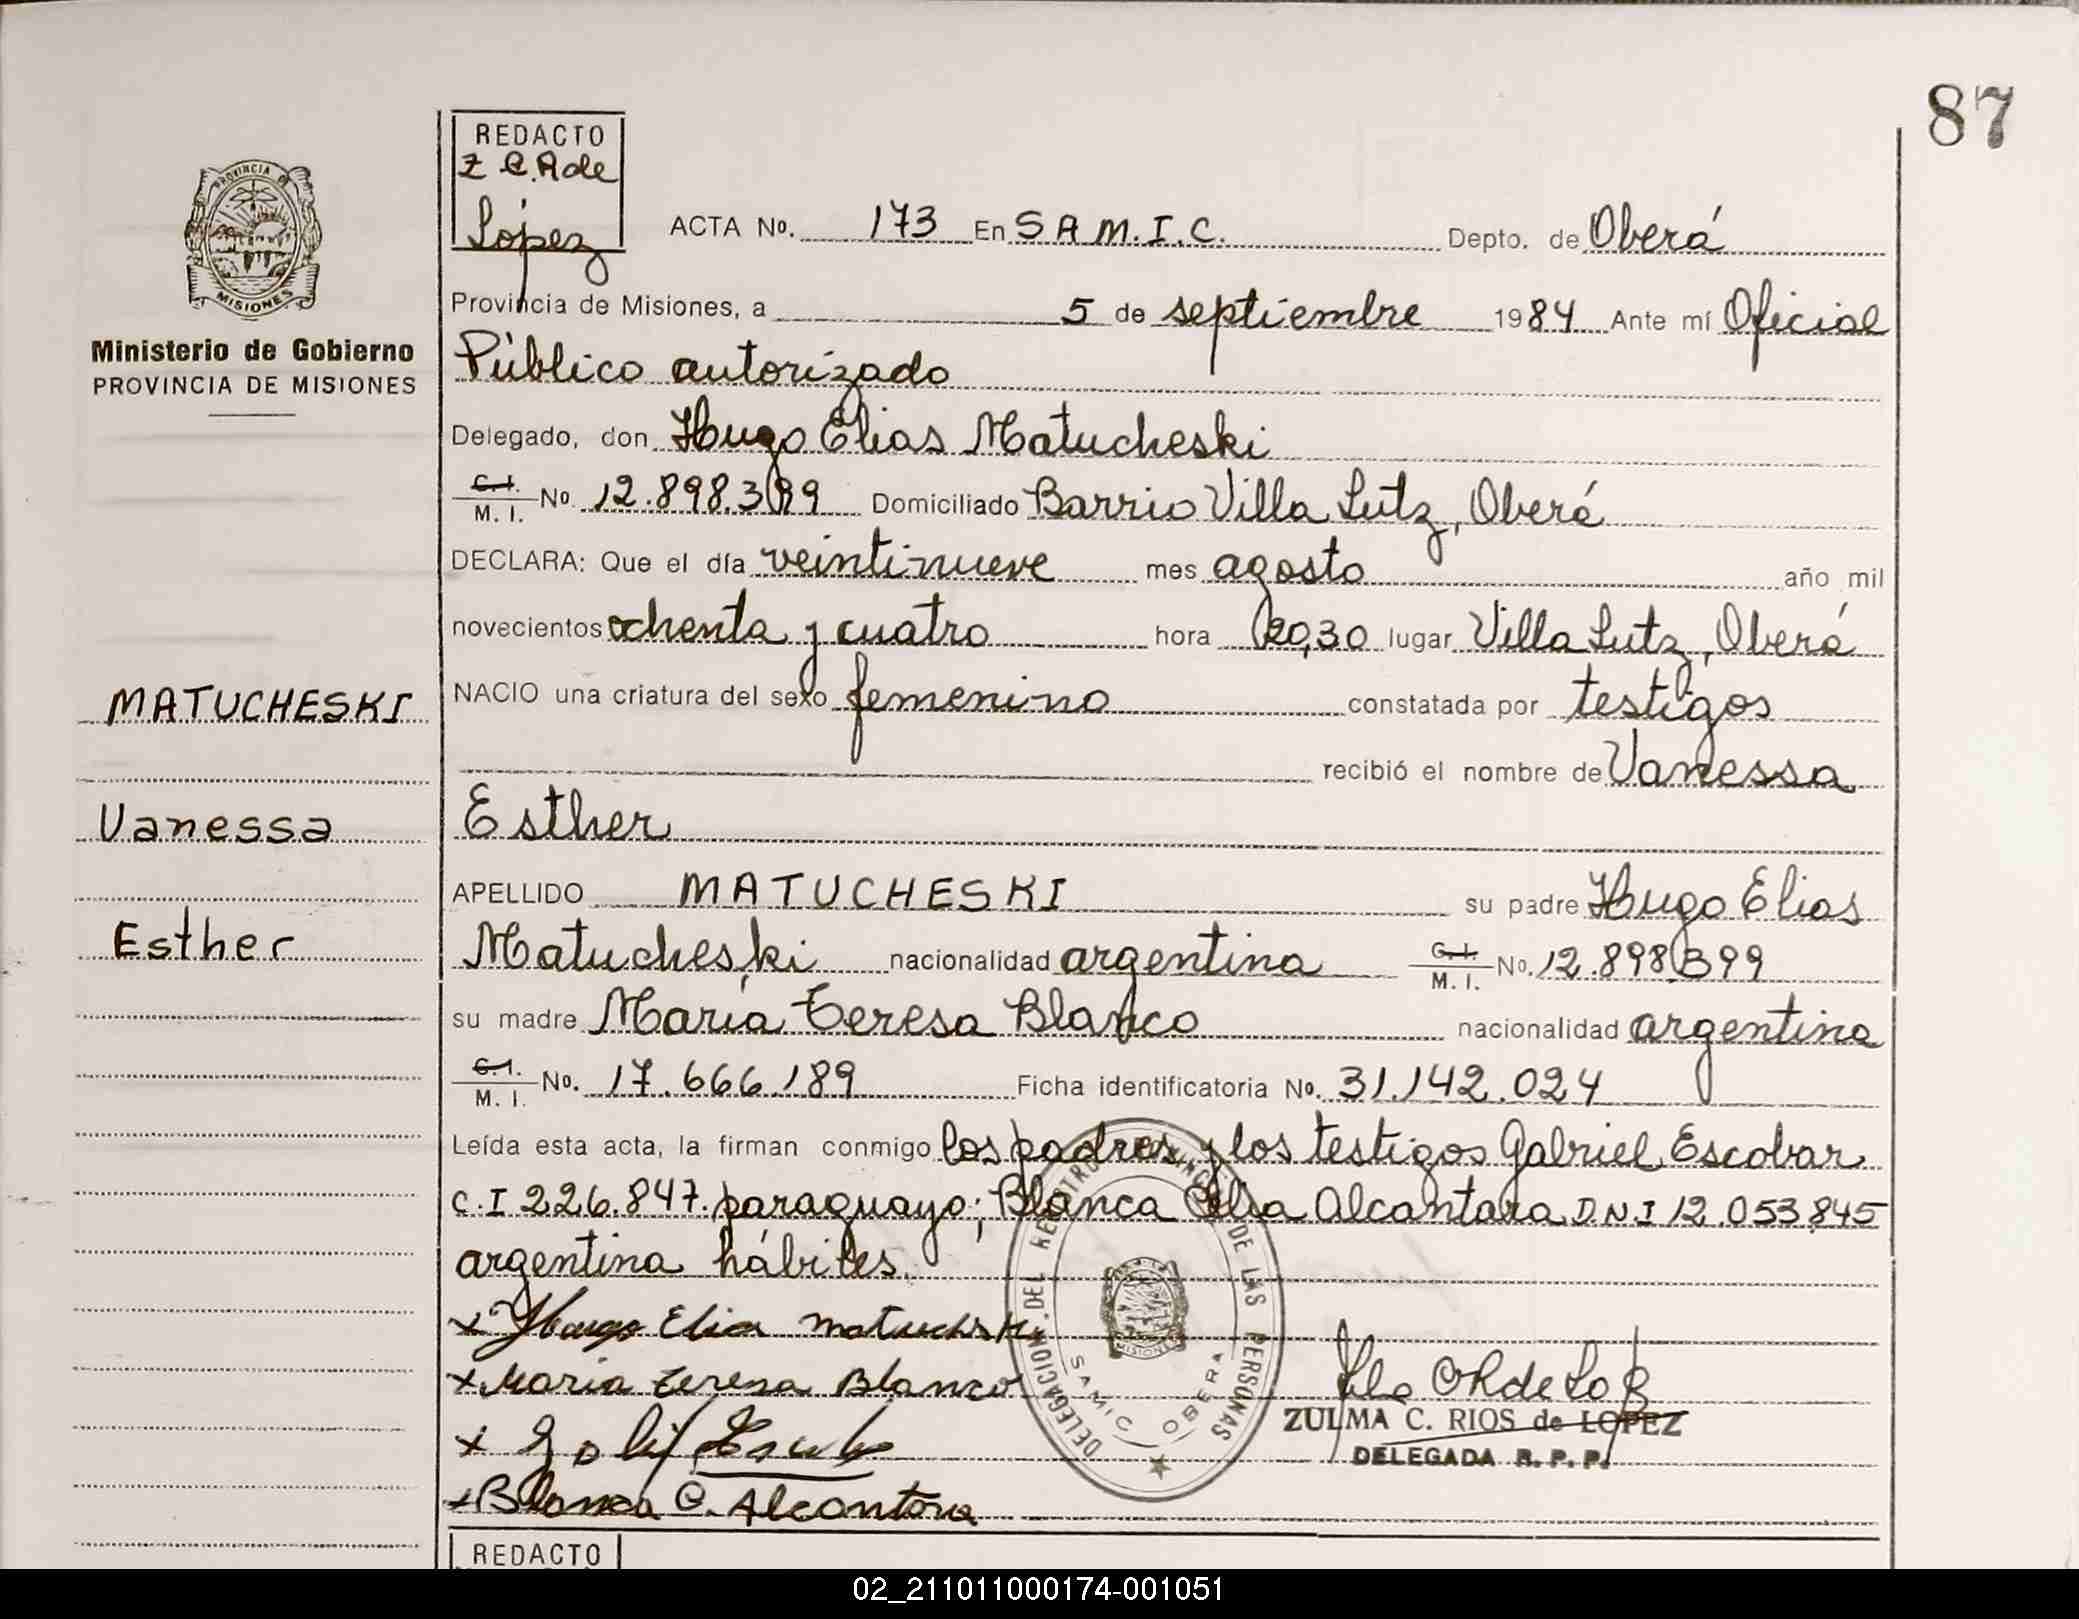 87
REDACTO
Z C. R de
López
ACTA No. 173 En S A M. I. C. Depto. de Oberá
Provincia de Misiones, a 5 de septiembre 1984 Ante mí Oficial
Público autorizado
Delegado, don Hugo Elias Matucheski
C.I. M. I. No. 12.898.399 Domiciliado Barrio Villa Lutz, Oberá
DECLARA: Que el día veintinueve mes agosto año mil
novecientos ochenta y cuatro hora 20,30 lugar Villa Lutz, Oberá
NACIO una criatura del sexo femenino constatada por testigos
recibió el nombre de Vanessa
Esther
APELLIDO MATUCHESKI su padre Hugo Elias
Matucheski nacionalidad argentina C.I. M. I. No. 12.898.399
su madre María Teresa Blanco nacionalidad argentina
C.I. M. I. No. 17.666.189 Ficha identificatoria No. 31.142.024
Leída esta acta, la firman conmigo los padres y los testigos Gabriel Escobar
C.I 226.847. paraguayo; Blanca Celsa Alcantara D.N.I 12.053.845
argentina hábiles.
x Hugo Elia matuchski
x Maria teresa Blanco
x
x Blanca C. Alcantara
ZULMA C. RIOS de LOPEZ
DELEGADA R. P. P.
DELEGACION DEL REGISTRO PROVINCIAL DE LAS PERSONAS
SAMIC OBERA
MISIONES
REDACTO
PROVINCIA DE
MISIONES
Ministerio de Gobierno
PROVINCIA DE MISIONES
MATUCHESKI
Vanessa
Esther
02_211011000174-001051